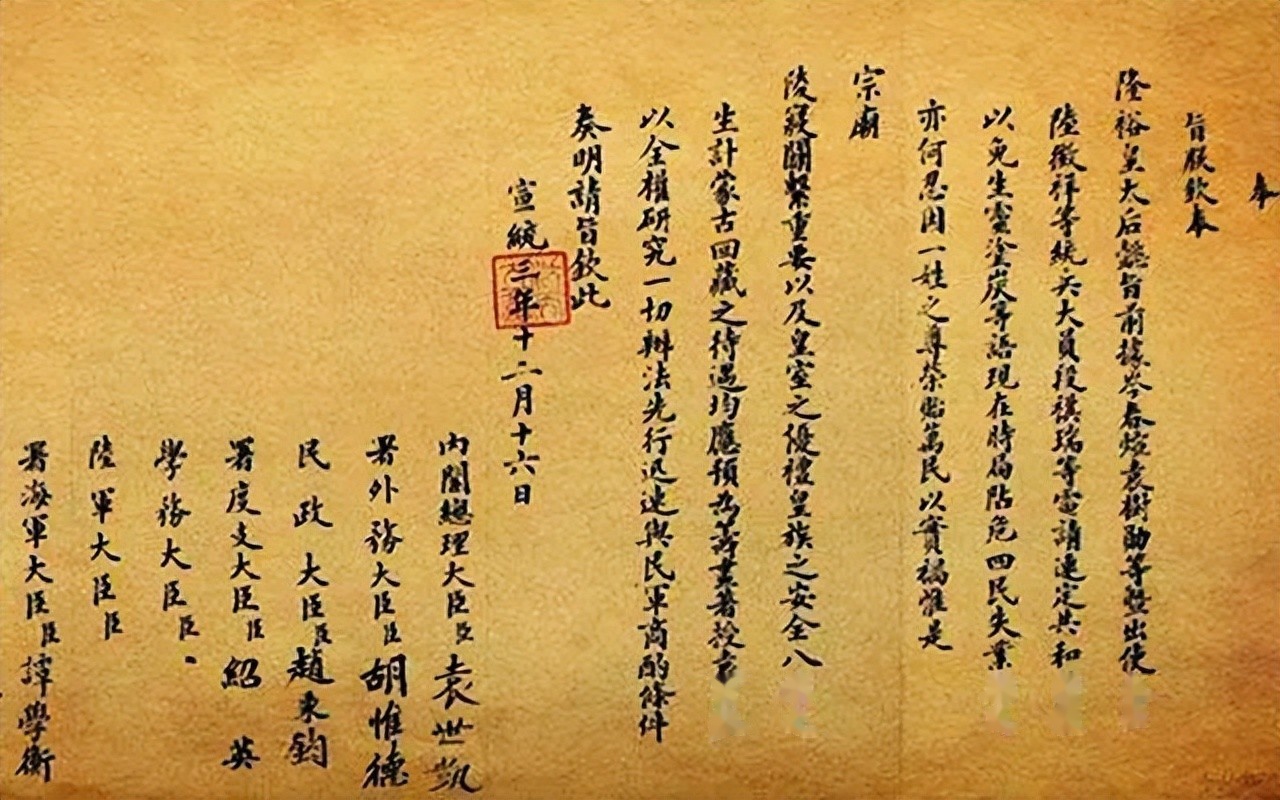 奉
旨朕欽奉
隆裕皇太后懿旨前據岑春煊袁樹勛等暨出使
陸徵祥等統兵大員段祺瑞等電請速定共和
以免生靈塗炭等語現在時局阽危四民失業
亦何忍因一姓之尊榮貽萬民以實禍惟是
宗廟
陵寢關繫重要以及皇室之優禮皇族之安全八
生計蒙古回藏之待遇均應預為籌畫著授袁
以全權研究一切辦法先行迅速與民軍商酌條件
奏明請旨欽此
宣統三年十二月十六日
內閣總理大臣臣袁世凱
署外務大臣臣胡惟德
民政大臣臣趙秉鈞
署度支大臣臣紹英
學務大臣臣
陸軍大臣臣
署海軍大臣臣譚學衡